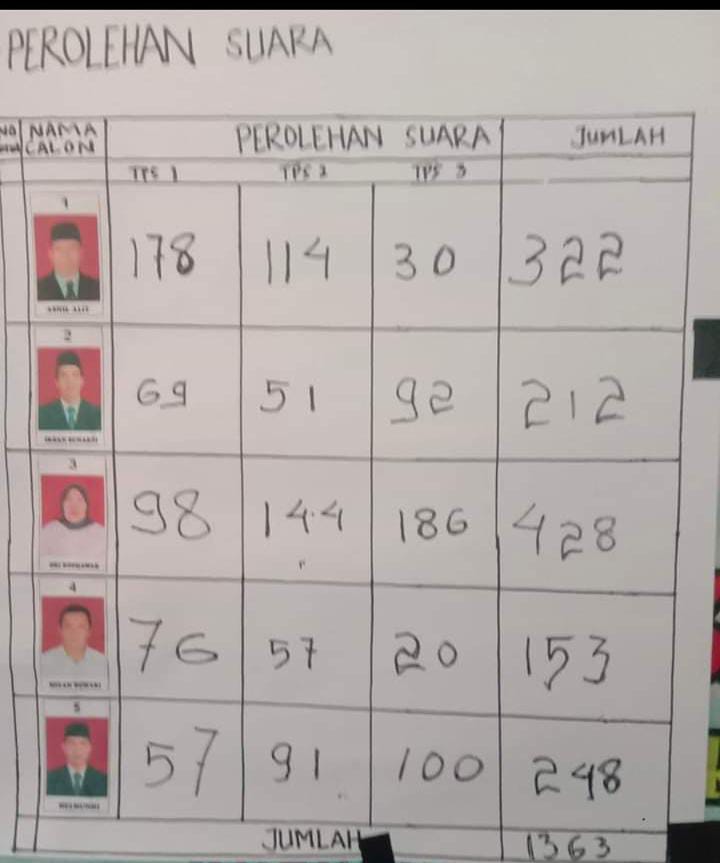 PEROLEHAN SUARA
NAMA CALON PEROLEHAN SUARA JUMLAH
TPS 1 TPS 2 TPS 3
1
178 114 30 322
2
69 51 92 212
3
98 144 186 428
4
76 57 20 153
5
57 91 100 248
JUMLAH 1363